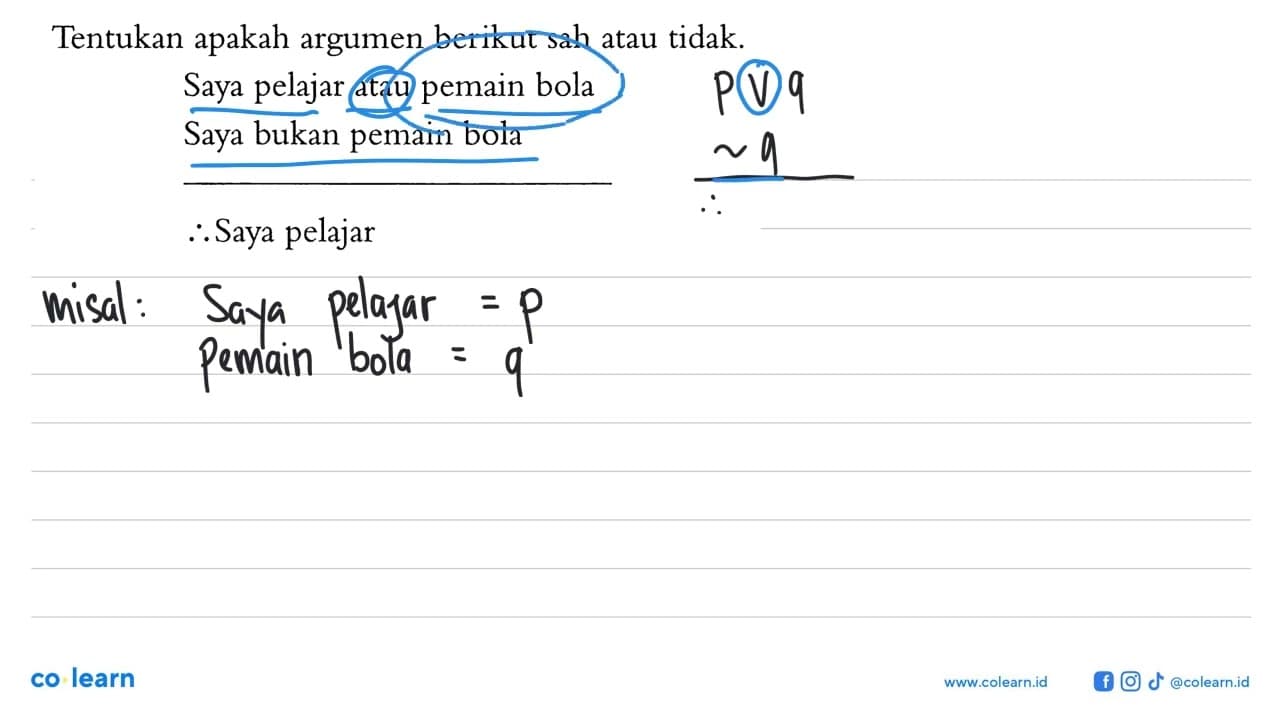 Tentukan apakah argumen berikut sah atau tidak.
Saya pelajar atau pemain bola
Saya bukan pemain bola
∴ Saya pelajar
p ∨ q
~ q
∴
misal: Saya pelajar = p
Pemain bola = q
co learn
www.colearn.id
@colearn.id